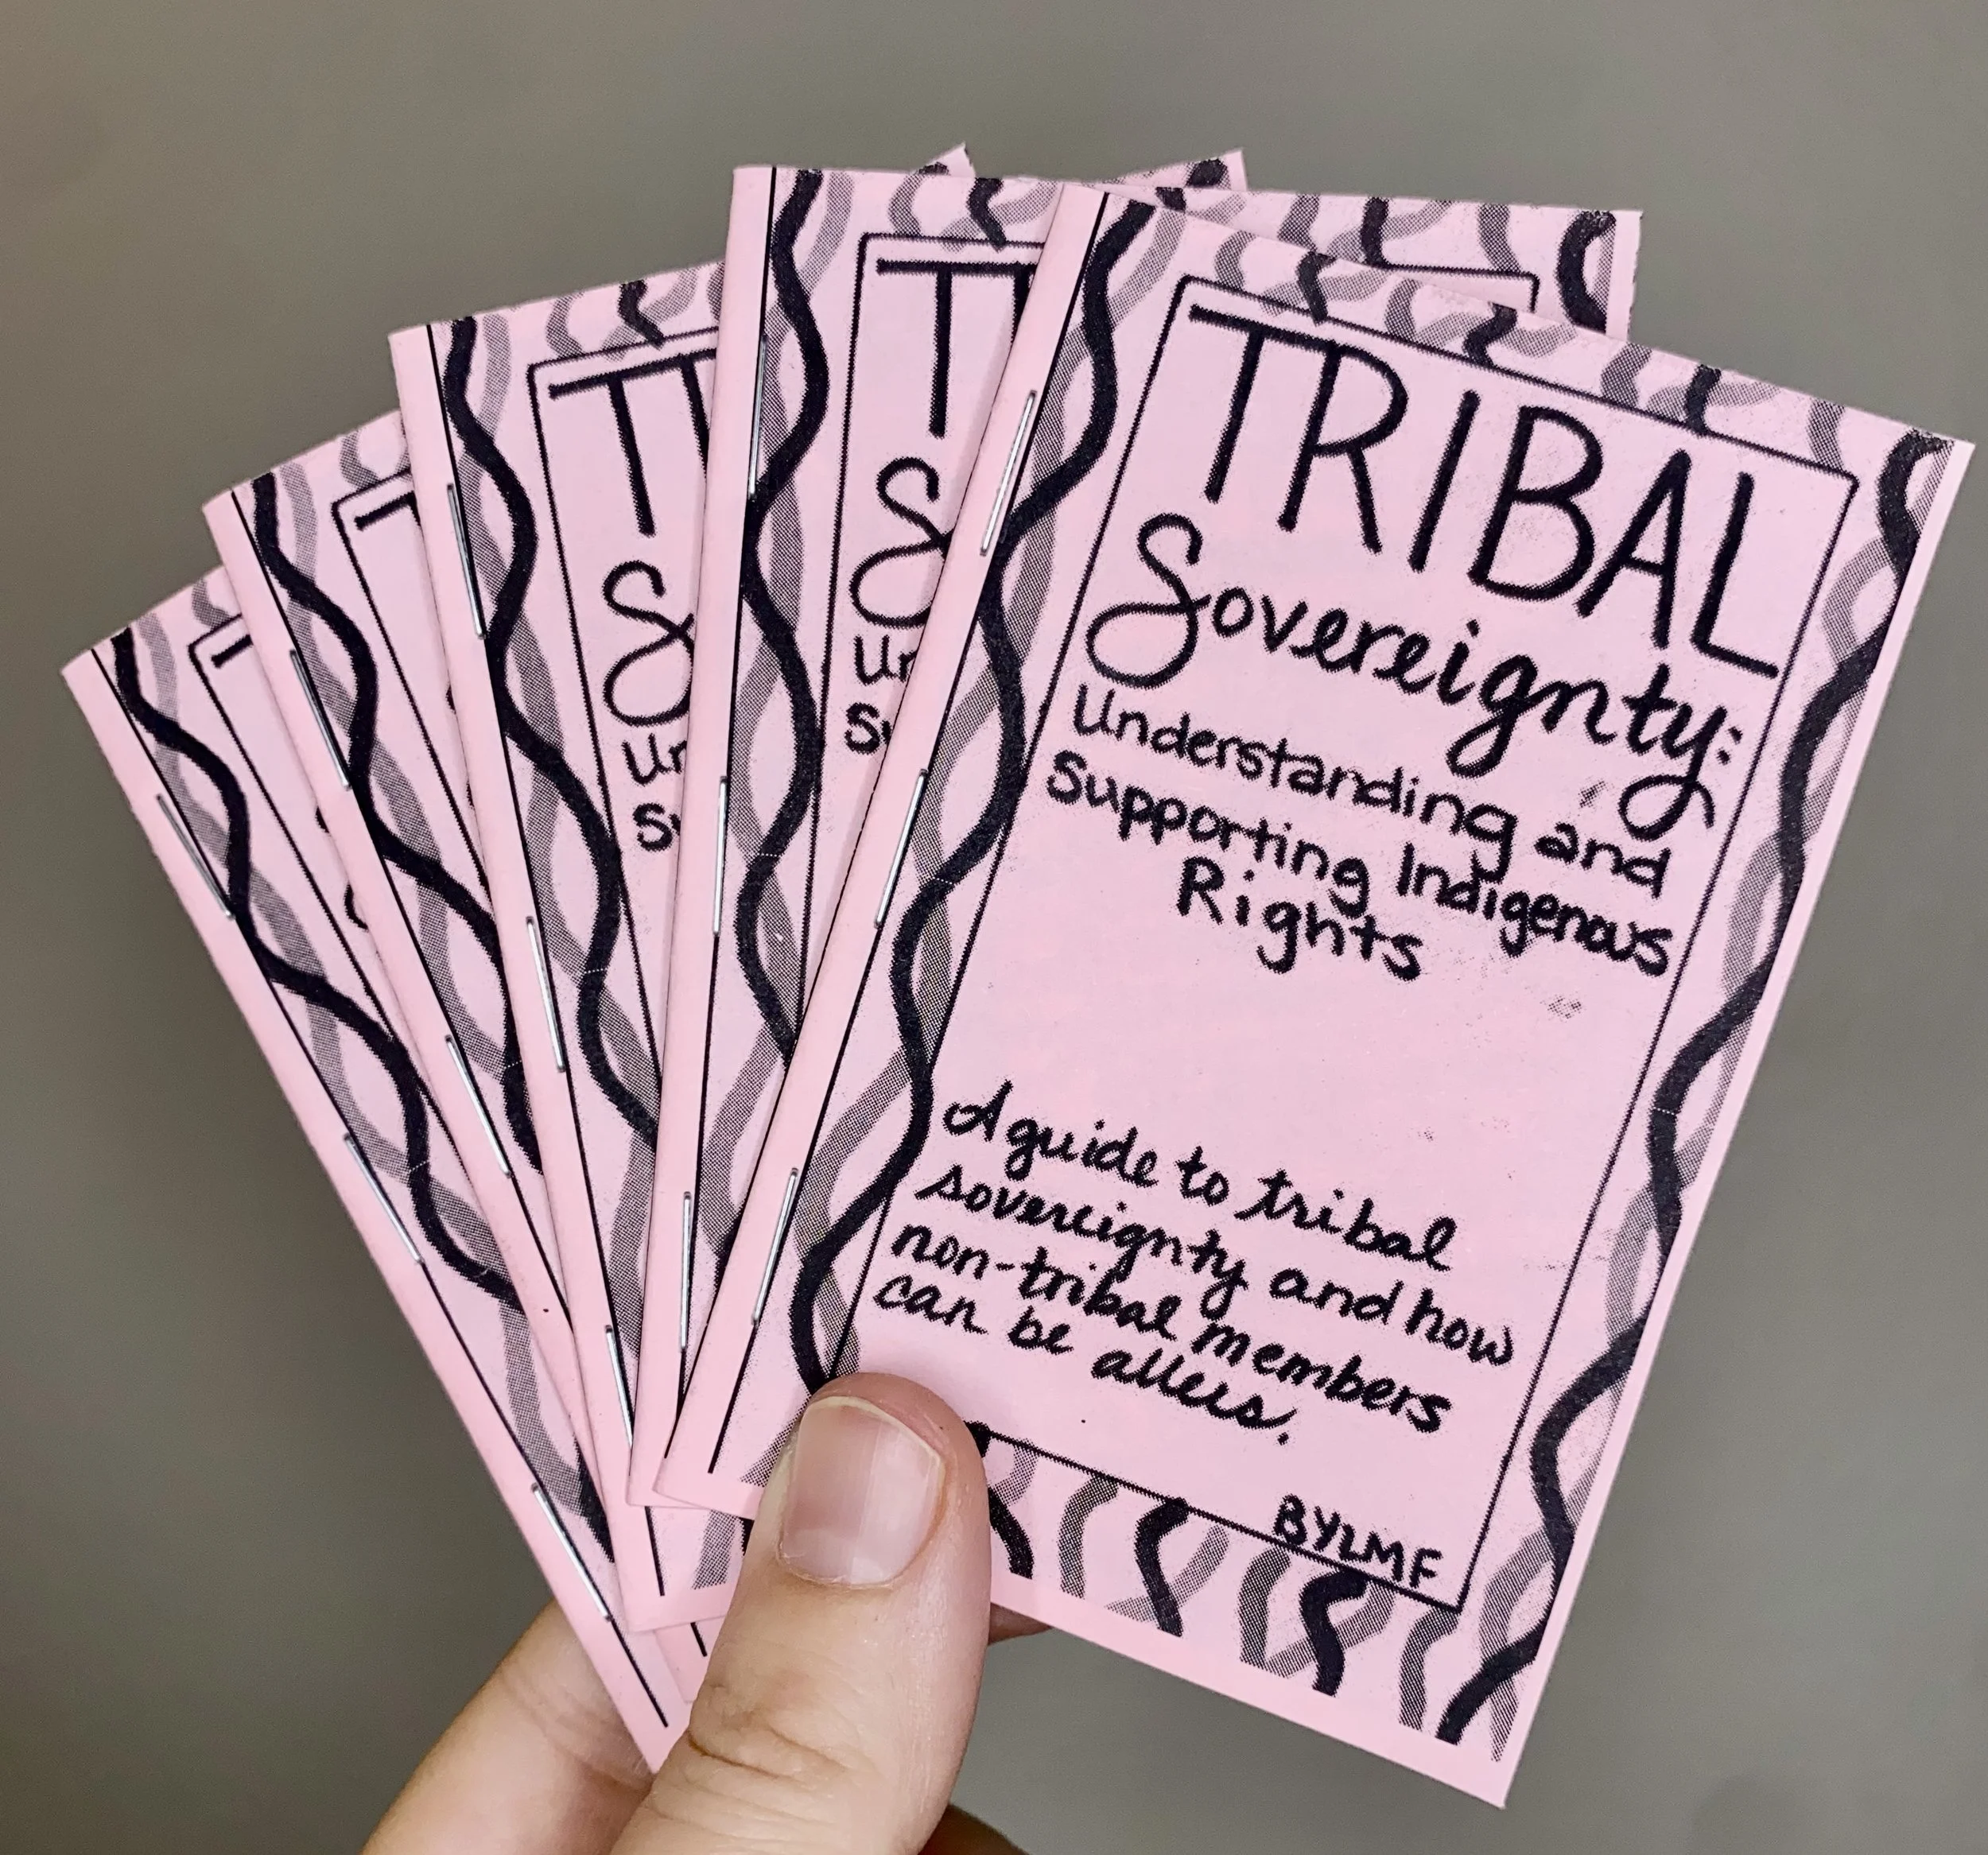 TRIBAL
Sovereignty:
Understanding and
Supporting Indigenous
Rights
A guide to tribal
sovereignty and how
non-tribal members
can be allies.
BY LMF
T
S
Un
Su
T
S
Un
Su
T
T